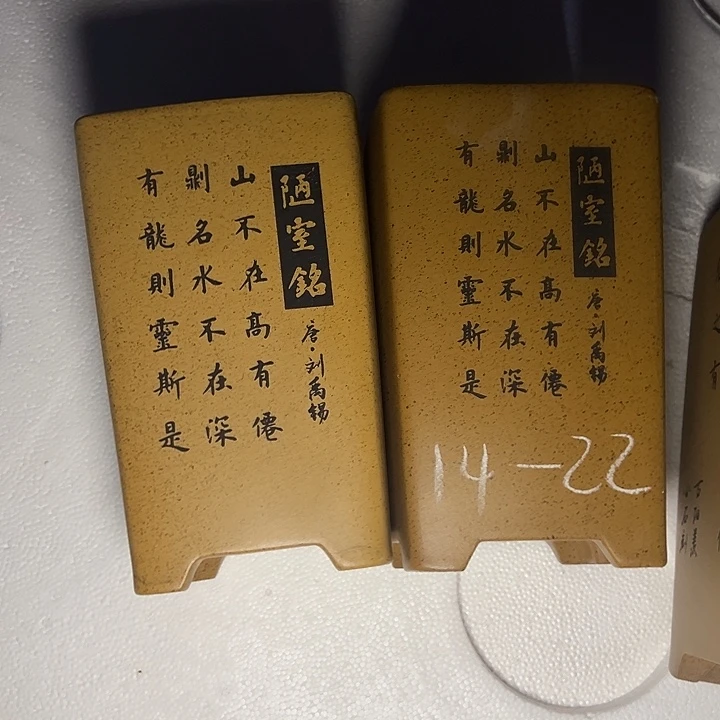 陋室銘
唐·刘禹錫
山不在高有僊
則名水不在深
有龍則靈斯是
陋室銘
唐·刘禹錫
山不在高有僊
則名水不在深
有龍則靈斯是
14-22